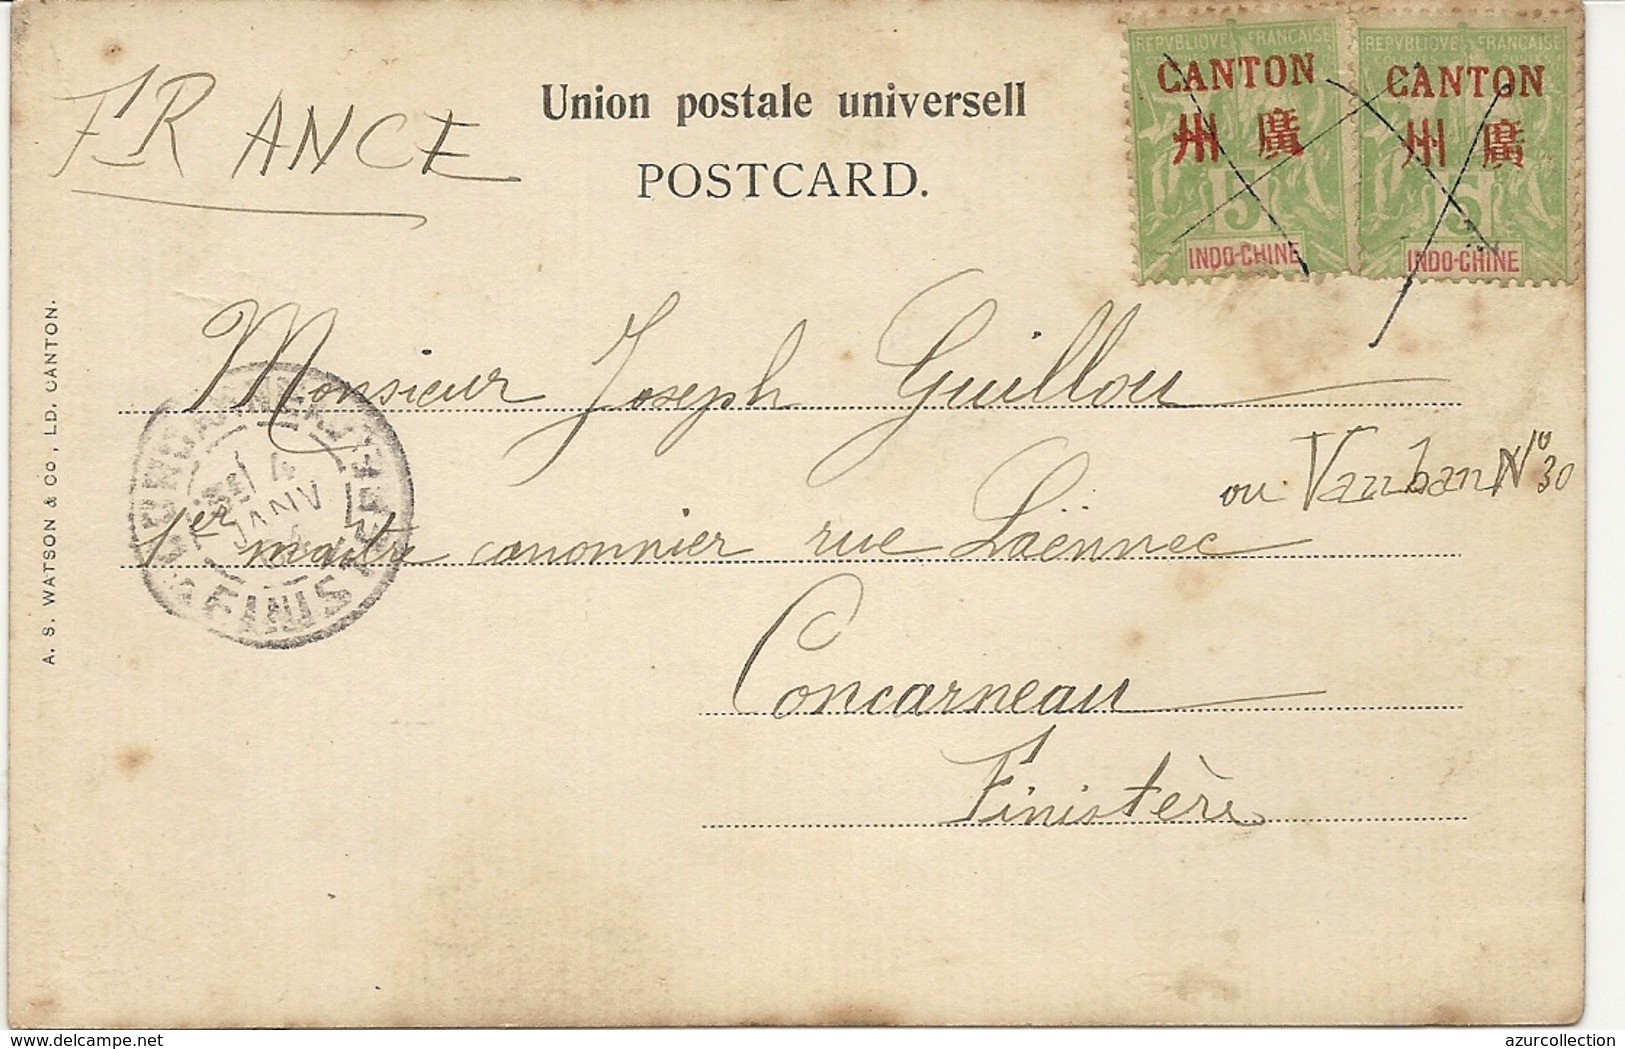 FRANCE
Union postale universell
POSTCARD.
REPVBLIQVE FRANCAISE
CANTON
州 廣
5
INDO-CHINE
REPVBLIQVE FRANCAISE
CANTON
州 廣
5
INDO-CHINE
Monsieur Joseph Guillou
ou Vauban No 30
1er maitre canonnier rue Laënnec
Concarneau
Finistère
4
JANV
FINISTERE
A. S. WATSON & CO., LD. CANTON.
delcampe.net
azurcollection